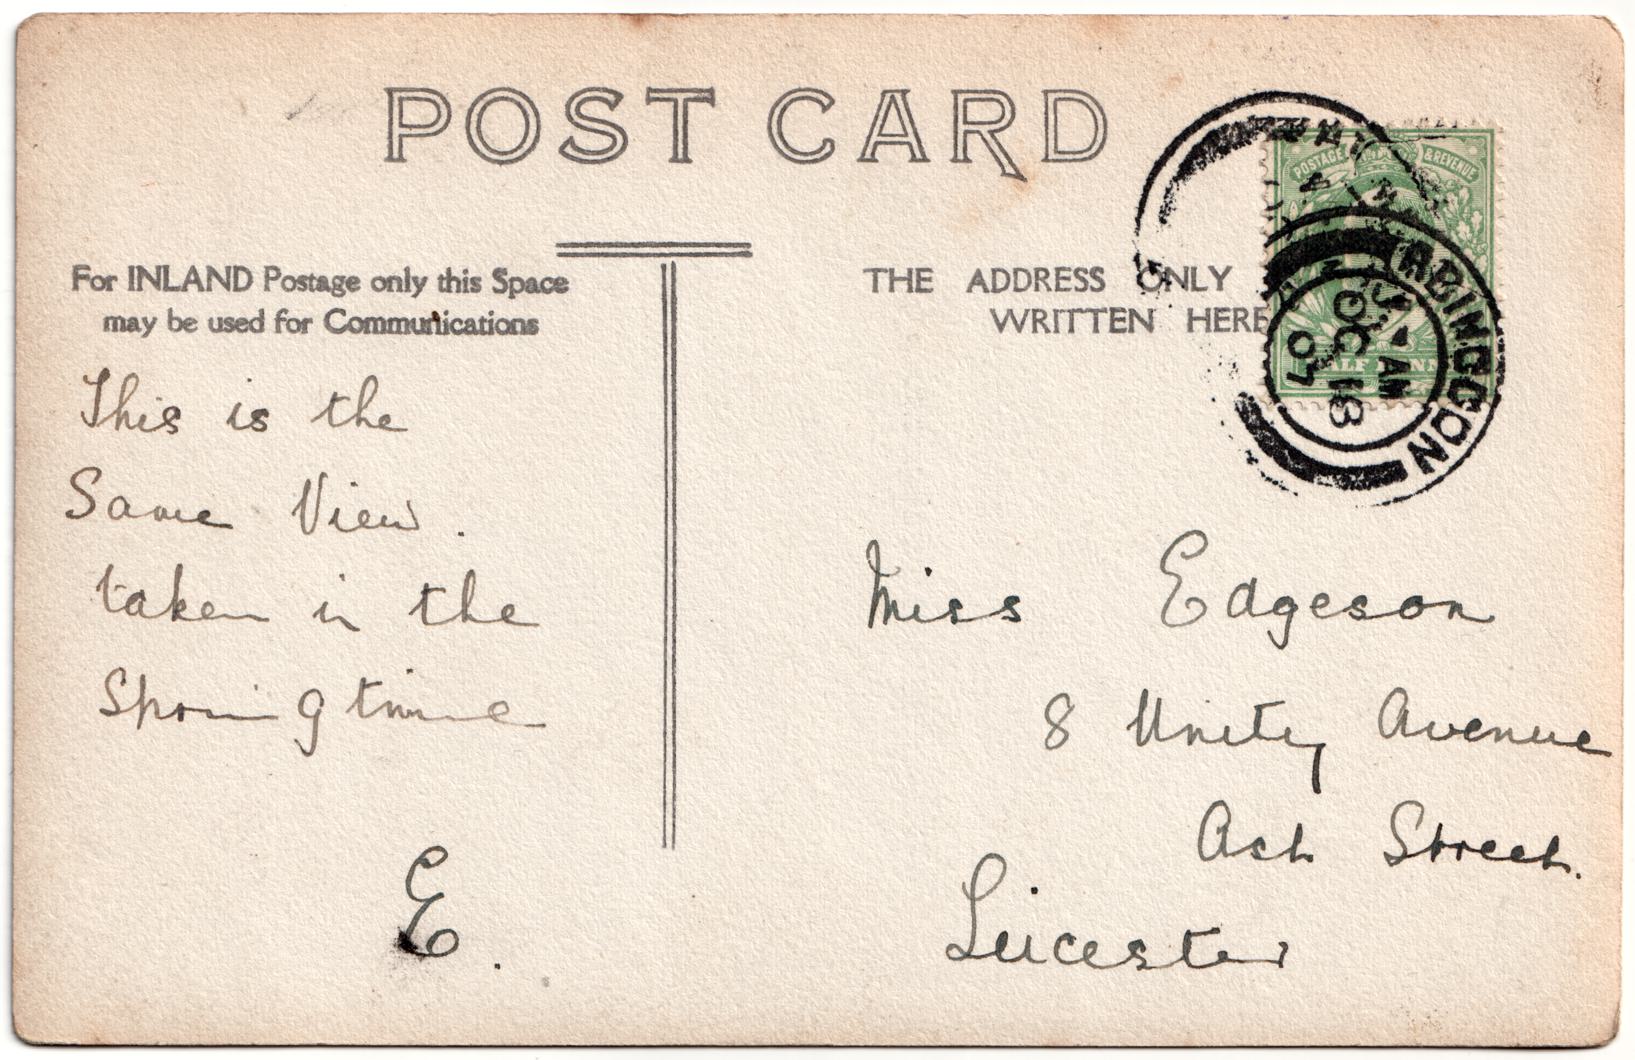 POST CARD
For INLAND Postage only this Space
may be used for Communications
THE ADDRESS ONLY
WRITTEN HERE
POSTAGE & REVENUE
HALF PENNY
ABINGDON
AM
OC 18
07
This is the
Same View.
taken in the
Spring time
E.
Miss Edgeson
8 Unity Avenue
Ash Street.
Leicester